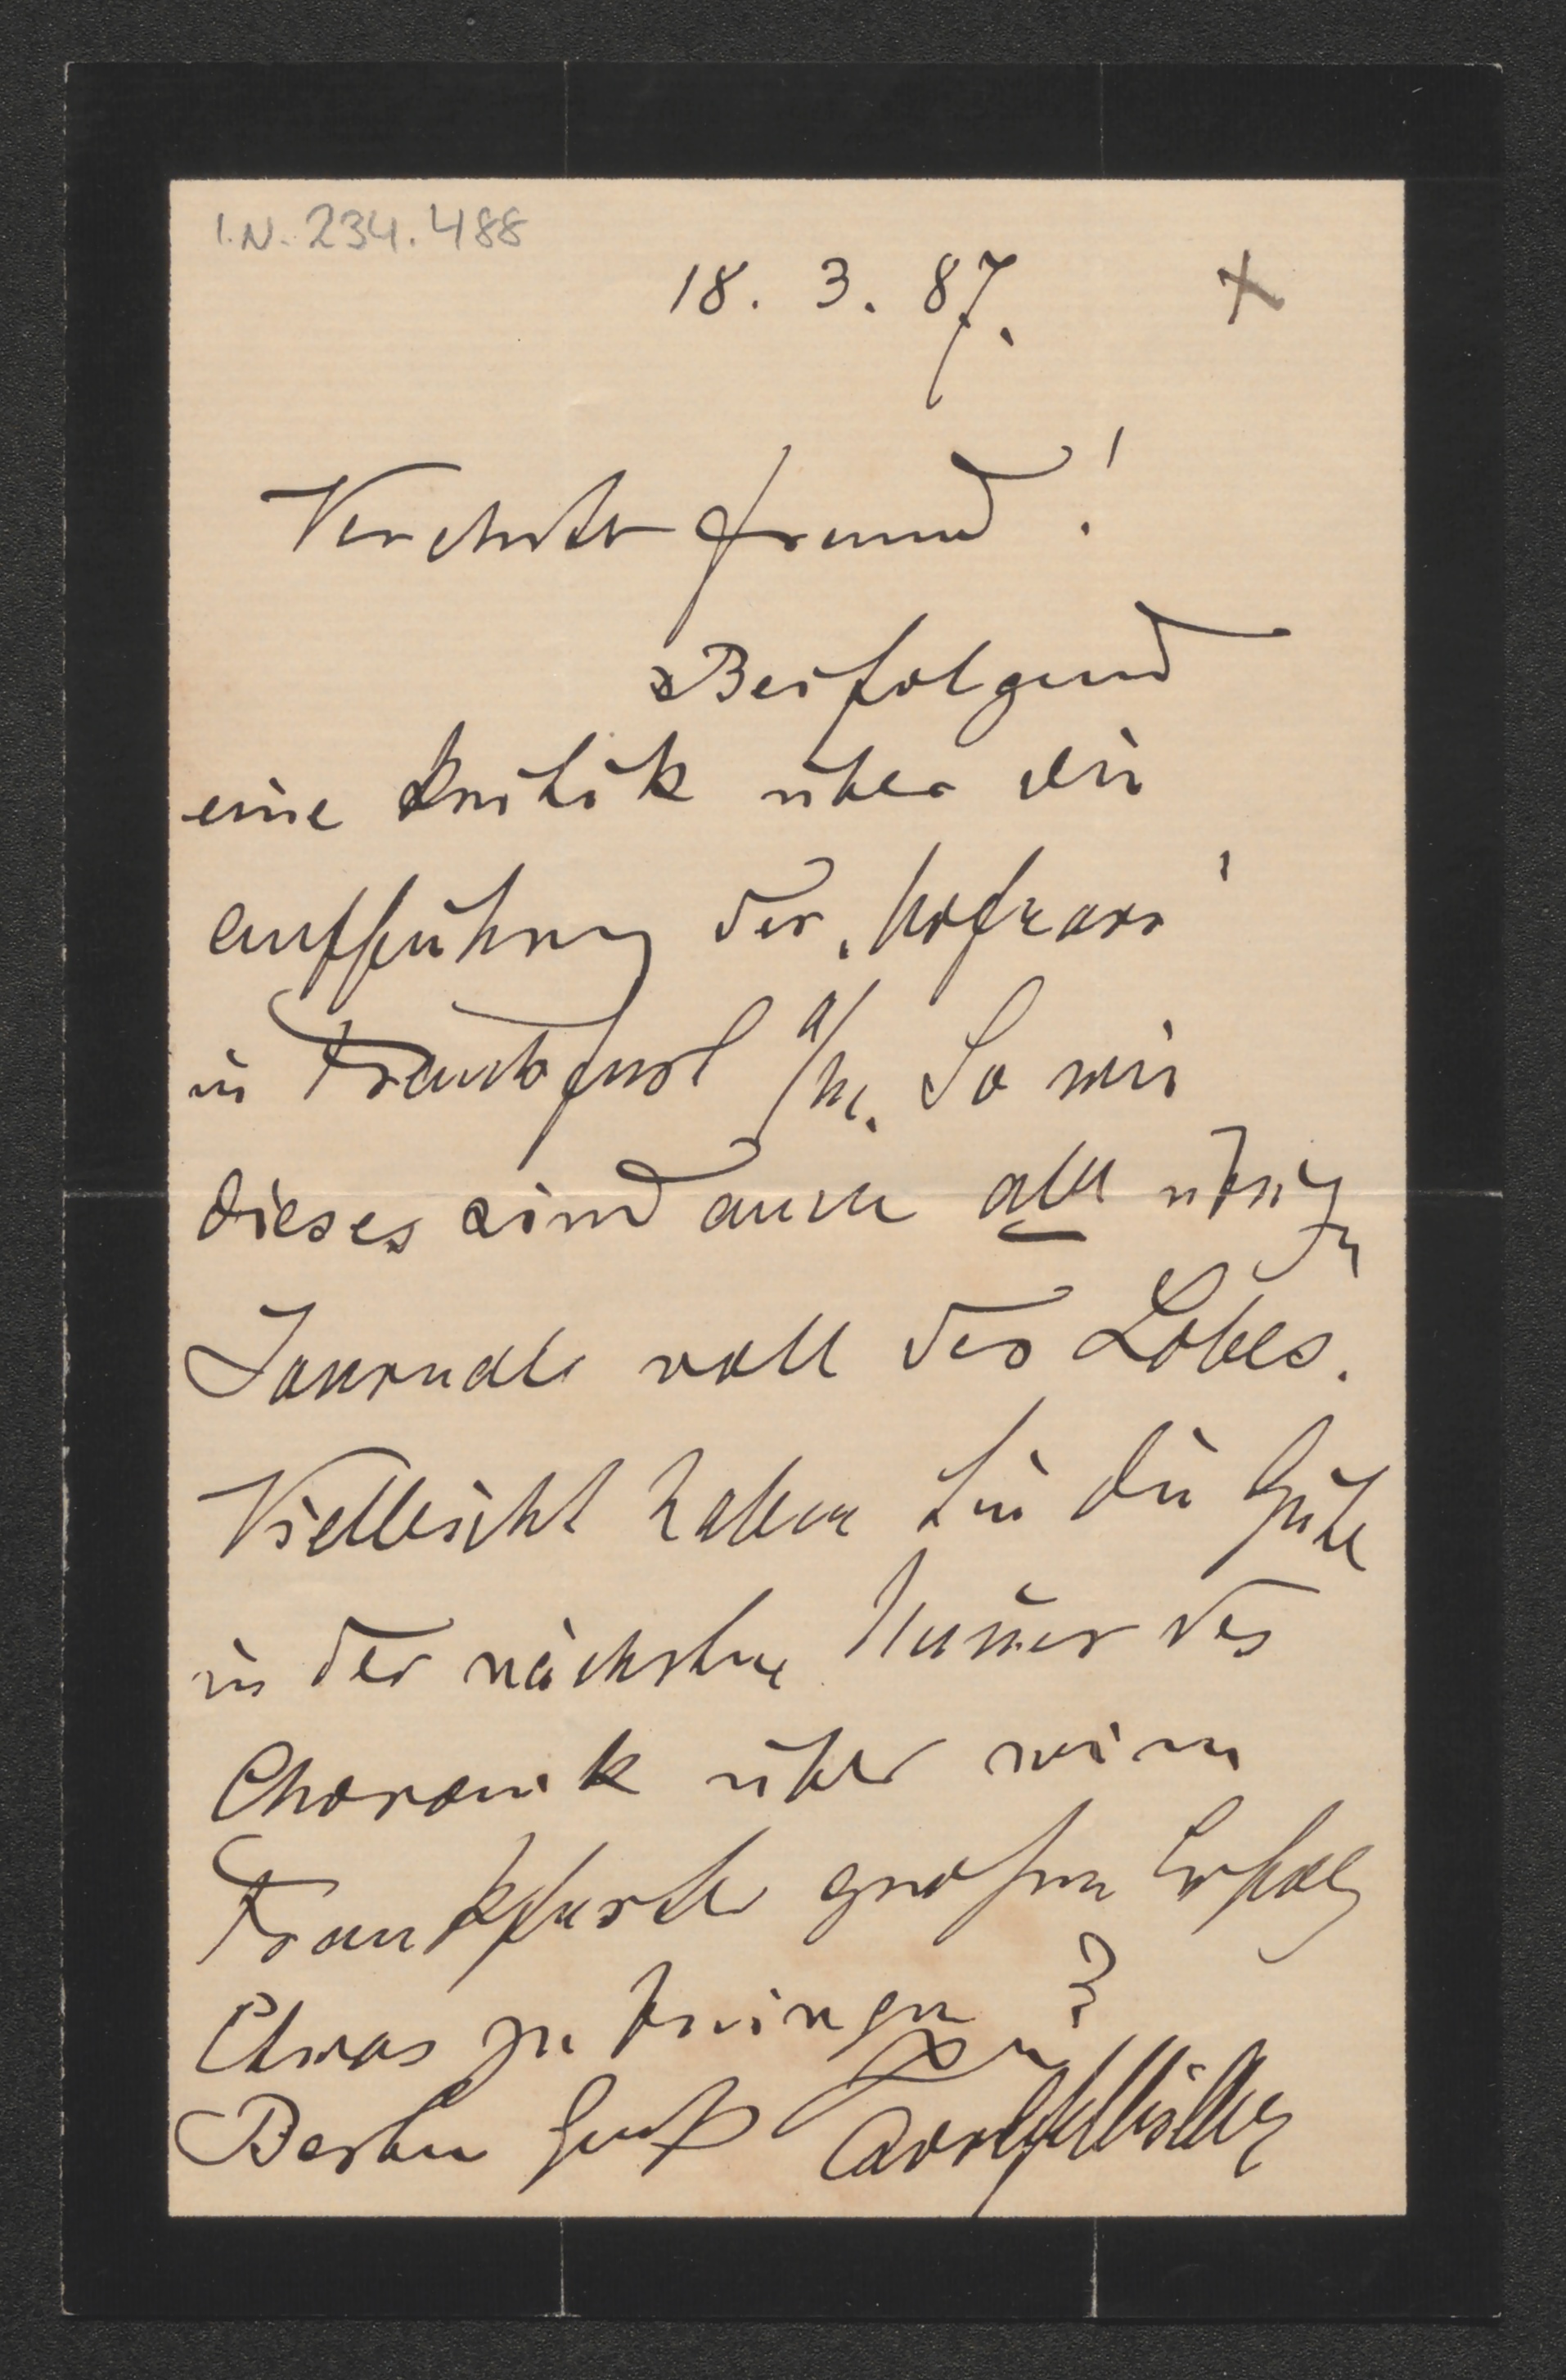 I.N. 234.488
18. 3. 87.
Verehrter Freund!
Beifolgend
eine Kritik über die
Aufführung der „Hofnarr"
in Frankfurt a/M. So wie
dieses sind auch alle übrigen
Journale voll des Lobes.
Vielleicht haben Sie die Güte
in der nächsten Num̄er der
Chronik über meinen
Frankfurter großen Erfolg
Etwas zu bringen?
Besten Gruß Ihr
Adolf Müller